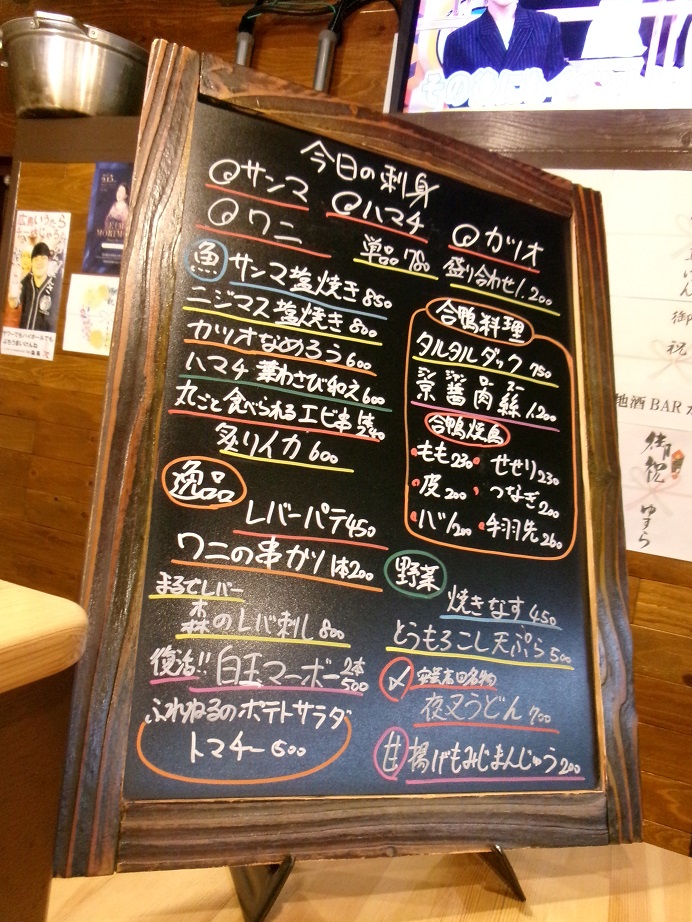 今日の刺身
サンマ
ハマチ
カツオ
ワニ
単品780
盛り合わせ1.200
魚
サンマ塩焼き850
ニジマス塩焼き800
カツオなめろう600
ハマチ葉わさび和え600
丸ごと食べられるエビ串1本240
炙りイカ600
合鴨料理
タルタルダック750
ジンジャンロースー
京醤肉絲1.200
合鴨焼鳥
もも230
せせり230
皮200
つなぎ200
ハツ200
手羽先260
逸品
レバーパテ450
ワニの串カツ1本200
まるでレバー
森のレバ刺し800
復活!!白玉マーボー2本500
ふれねるのポテトサラダ
トマチー500
野菜
焼きなす450
とうもろこし天ぷら500
〆
安芸高田名物
夜叉うどん700
甘
揚げもみじまんじゅう200
地酒BAR
御
祝
祝
ゆずら